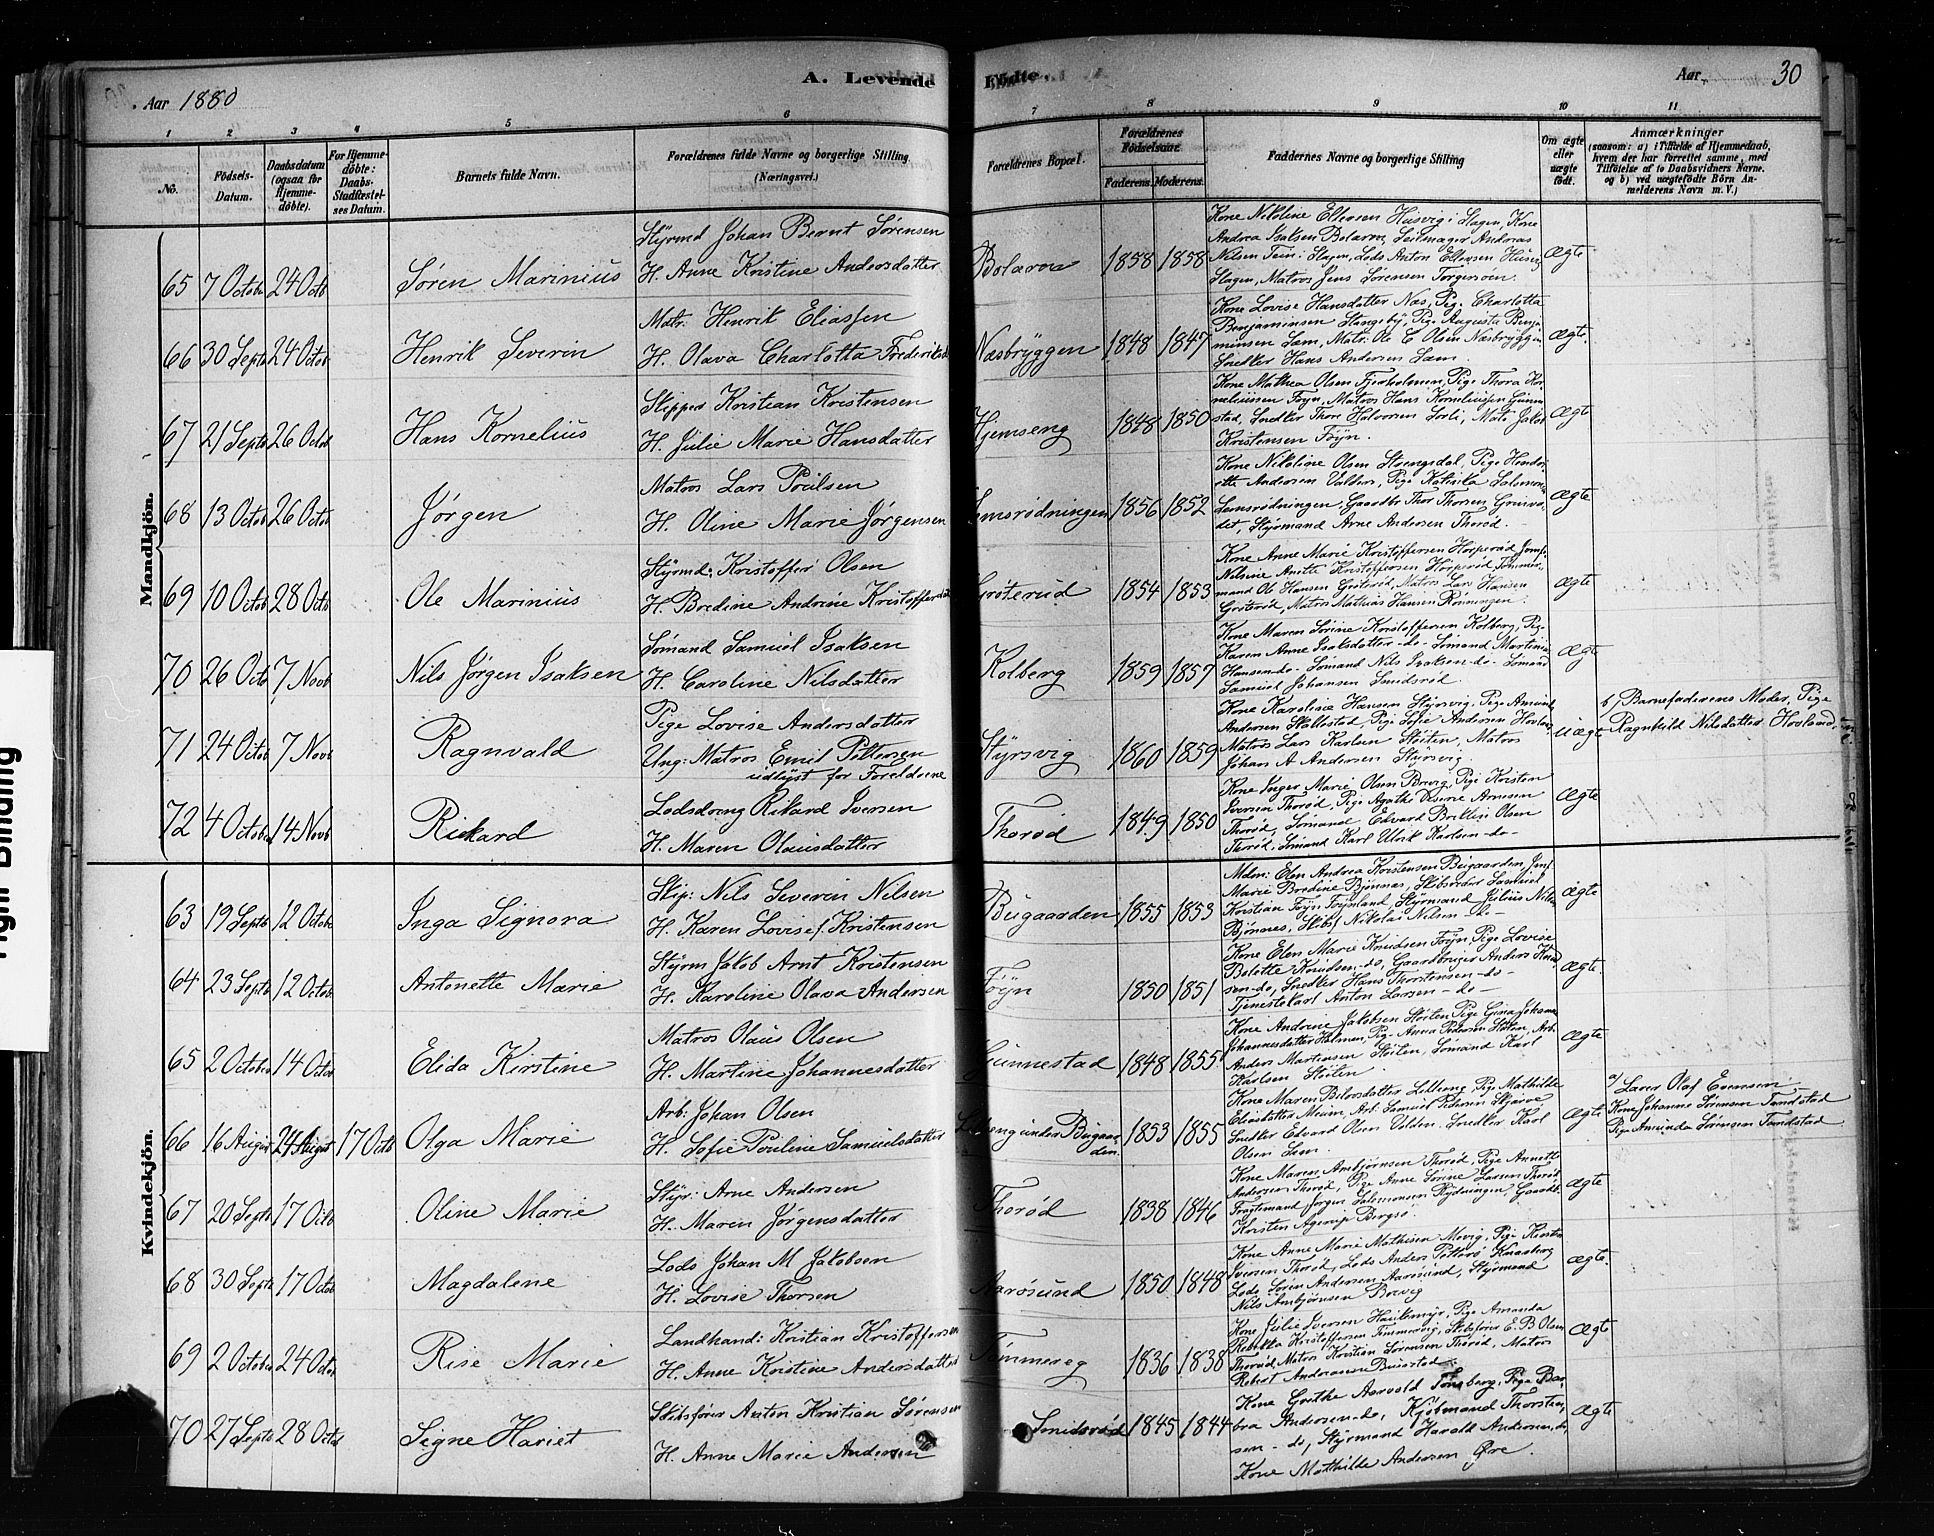 Aar 1880
A. Levende Fødte.
Aar
30
1 2 3 4 5 6 7 8 9 10 11
No.
Fødsels-Datum.
Daabsdatum (ogsaa for Hjemmedøbte).
For Hjemmedøbte: Daabs-Stadfæstelses Datum.
Barnets fulde Navn.
Forældrenes fulde Navne og borgerlige Stilling. (Næringsvei.)
Forældrenes Bopæl.
Forældrenes Fødselsaar.
Faderens. Moderens.
Faddernes Navne og borgerlige Stilling
Om ægte eller uægte født.
Anmærkninger
(saasom: a) i Tilfælde af Hjemmedaab, hvem der har forrettet samme, med Tilføielse af to Daabsvidners Navne, og b) ved uægtefødte Børn Anmelderens Navn m. V.)
Mandkjøn.
65 7 Octobr 24 Octb Søren Marinius
Styrmd Johan Bernt Sørensen
H. Anne Kristine Andersdatter
Bolærne 1858 1858
Kone Nikoline Ellevsen Husvig i Slagen, Kone
Andrea Isaksen Bolærne, Seilmager Andreas
Nilsen Tein i Slagen, Lods Anton Ellevsen Husvig
Slagen, Matros Jens Sørensen Torgersøen.
Ægte
66 30 Septb 24 Octob Henrik Severin
Matr: Henrik Eliassen
H. Olava Charlotta Frederiksd
Næsbryggen 1848 1847
Kone Lovise Hansdatter Næs, Pig. Charlotta
Benjaminsen Stangeby, Pige Augusta Benja
minsen Lam, Matr: Ole C Olsen Næsbryggen
Snedker Hans Andersen Lam.
Ægte.
67 21 Septb 26 Octob Hans Kornelius
Skipper Kristian Kristensen
H. Julie Marie Hansdatter
Hjemseng 1848 1850
Kone Mathea Olsen Fjerholmen, Pige Thora Kor
neliussen Føyn, Matros Hans Korneliussen Gunne
stad, Snedker Thore Halvorsen Sorli, Mats Jakob
Kristensen Føyn.
Ægte
68 13 Octob 26 Octob Jørgen
Matros Lars Poulsen
H. Oline Marie Jørgensen
1856 1852
Kone Nikoline Olsen Stvengsdal, Pige Hendri
ette Andersen Valden, Pige Katrika Salomons
Lemsrødningen, Gaardbr Thor Thorsen
det, Styrmand Arne Andersen Thorød.
Ægte
69 10 Octob 28 Octb Ole Marinius
Styrmd: Kristoffer Olsen
H. Bredine Andrine Kristoffersd
Grøterud 1854 1853
Kone Anne Marie Kristoffersen Horperød, Jomf
Nilsine Anette Kristoffersen Horperød, Tømmer
mand Ole Hansen Grøterød, Matros Lars Hansen
Grøterød, Matros Mathias Hansen Rønningen.
Ægte
70 26 Octb 7 Novb Nils Jørgen Isaksen
Sømand Samuel Isaksen
H. Caroline Nilsdatter
Kolberg 1859 1857
Kone Maren Sørine Kristoffersen Kolberg, Pige
Karen Anne Isaksdatter do. Sømand Martinius
Hansen do. Sømand Nils Isaksen do. Sømand
Samuel Johansen Smidsrød.
Ægte
71 24 Octob 7 Novb Ragnvald
Pige Lovise Andersdatter
Ung: Matros Emil Pettersen
udlyst for Foreldrene
Styrsvig 1860 1859
Kone Karoline Hansen Styrsvig, Pige Amunde
Andersen Skallestad, Pige Sofie Andersen Hovland
Matros Lars Karlsen Støiten, Matros
Johan A Andersen Styrsvig.
uægte
b/ Barnefaderens Moder, Pige
Ragnhild Nilsdatter Hovland.
72 4 October 14 Novb Rickard
Lodsdreng Rikard Iversen
H. Maren Olausdatter
Thorød 1849 1850
Kone Inger Marie Olsen Brevig, Pige Kirsten
Iversen Thorød, Pige Agathe Arnesen
Thorød, Sømand Edvard Olsen
Thorød, Sømand Karl Ulrik Karlsen do.
Ægte
Kvindekjøn.
63 19 Septb 12 Octobr Inga Signora
Skip: Nils Severin Nilsen
H. Karen Lovise f. Kristensen
Bugaarden 1855 1853
Mdm: Elen Andrea Kristensen Bugaarden, Jmf
Marie Bredine Bjønnæs, Skibsreder Samuel
Kristian Føyn, Føynland, Styrmand Julius Nilsen
Bjønnes, Skibsf Nikolai Nilsen do
Ægte
64 23 Septb 12 Octob Antonette Marie
Styrm Jakob Arnt Kristensen
H. Karoline Olava Andersen
Føyn 1850 1851
Kone Elen Marie Knudsen Føyn, Pige Lovise
Bolette Knudsen do, Gaardbruger Anders Knud
sen do, Snedker Hans Thorstensen do
Tjenestekarl Anton Larsen do
Ægte.
65 2 Octobr 14 Octob Elida Kirstine
Matros Olaus Olsen
H. Martine Johannesdatter
Gunnestad 1848 1855
Kone Andrine Jakobsen Støiten, Pige Gina Johanne
Johannesdatter Holmen, Pige Anna Pedersen Støiten, Arb.
Anders Martinsen Støiten, Sømand Karl
Karlsen Støiten
Ægte
66 16 August 24 August 17 Octb Olga Marie
Arb: Johan Olsen
H. Sofie Pouline Samuelsdatter
under Bugaarden 1853 1855
Kone Maren Lilleeng, Pige Mathilde
Eliasdatter Meum, Arb. Samuel Pedersen
Snedker Edvard Olsen Volden, Snedker Karl
Olsen Lam
Ægte
a/ Lærer Olaf Evensen
Kone Johanne Sørensen Tandstad
Pige Amunda Sørensen Tandstad
67 20 Septb 17 Octb Oline Marie
Styr: Arne Andersen
H. Maren Jørgensdatter
Thorød 1838 1846
Kone Maren Ambjørnsen Thorød, Pige Annette
Andersen Thorød, Pige Anne Sørine Larsen Thorød
Fragtemand Jørgen Salomonsen Rydningen, Gaardb.
Kristen Bergsø
Ægte
68 30 Septb 17 Octob Magdalene
Lods Johan M Jakobsen
H. Lovise Thorsen
Aarøsund 1850 1848
Kone Anne Marie Mathisen Movig, Pige Kirstin
Iversen Thorød, Lods Anders Petterø
Lods Søren Andersen Aarøsund, Styrmand
Nils Ambjørnsen Brevig
Ægte.
69 2 October 24 Octob Rise Marie
Landhand: Kristian Kristoffersen
H. Anne Kristine Andersdatter
Tømmereg 1836 1838
Kone Julie Iversen Haukemyr, Pige Amanda
Rebekka Kristoffersen Tømmervig, Skibsfører E. B Olsen
Thorød, Matros Kristian Sørensen Thorød, Matros
Robert Andreasen Buerstad
Ægte
70 27 Septb 28 Octob Signe Hariet
Skibsfører Anton Kristian Sørensen
H. Anne Marie Andersen
Smidsrød 1845 1844
Kone Grethe Aarvold Tønsberg, Pige Bar
bra Andersen do, Kjøbmand Thorstein
sen do, Styrmand Harald Andersen do,
Kone Mathilde Andersen Øre.
Ægte
Tight Binding